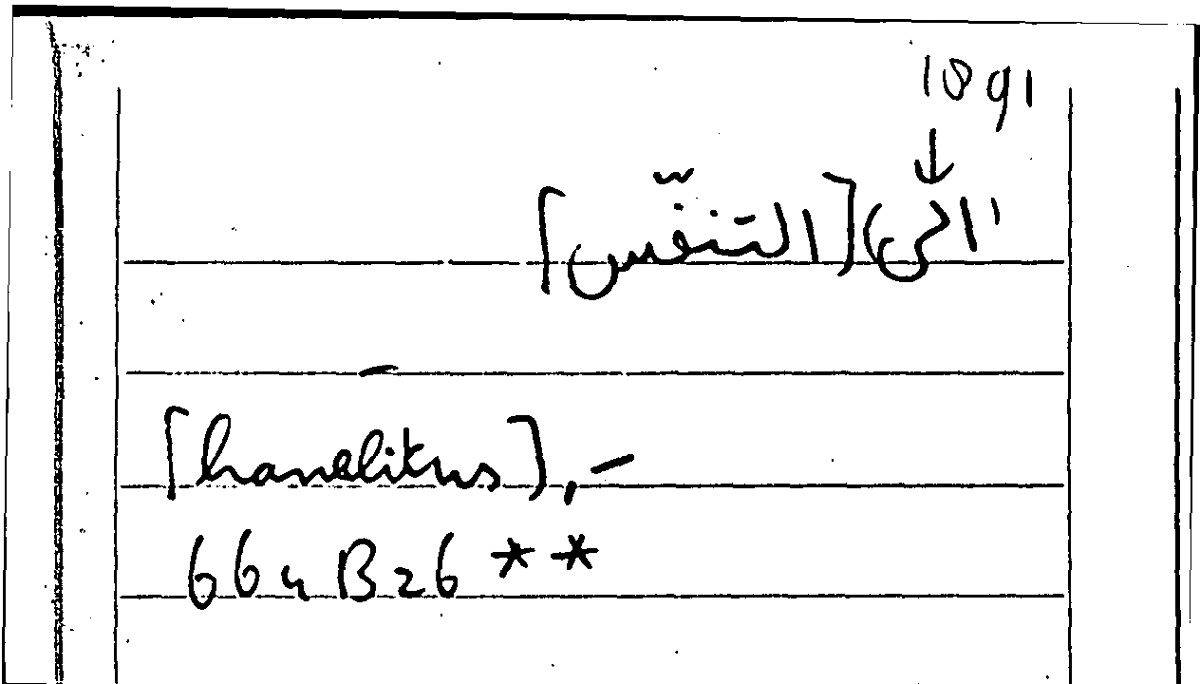 1891
↓
الى) [التنفّس]
–
[hanelitus], –
664 B26 **